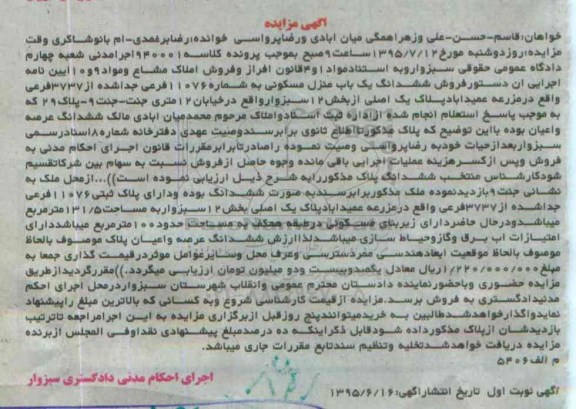 آگهی مزایده
خواهان:قاسم-حسن-علی وزهراهمگی میان ابادی ورضاپرواسی خوانده:رضابرغمدی-ام بانوشاکری وقت
مزایده:روزدوشنبه مورخ۱۳۹۵/۷/۱۲ساعت۹صبح بموجب پرونده کلاسه۹۴۰۰۰۱اجرامدنی شعبه چهارم
دادگاه عمومی حقوقی سبزواروبه استنادمواد۱و۴قانون افراز وفروش املاک مشاع ومواد۹و۱۰آیین نامه
اجرایی ان دستورفروش ششدانگ یک باب منزل مسکونی به شماره۱۱۰۷۶فرعی جداشده از۳۷۳۷فرعی
واقع درمزرعه عمیدابادپلاک یک اصلی ازبخش۱۲سبزوارواقع درخیابان۱۲متری جنت-جنت۹-پلاک۲۹ که
به موجب پاسخ استعلام انجام شده ازاداره ثبت اسنادواملاک مرحوم محمدمیان ابادی مالک ششدانگ عرصه
واعیان بوده بااین توضیح که پلاک مذکورتااطلاع ثانوی برابرسندوصیت عهدی دفترخانه شماره۸اسنادرسمی
سبزواربعدازحیات خودبه رضاپرواسی وصیت نموده راصادرتابرابرمقررات قانون اجرای احکام مدنی به
فروش وپس ازکسرهزینه عملیات اجرایی باقی مانده وجوه حاصل ازفروش نسبت به سهام بین شرکاتقسیم
شودکارشناس منتخب ششدانگ پلاک مذکوررابه شرح ذیل ارزیابی نموده است))...ازمحل ملک به
نشانی جنت۹بازدیدنموده ملک مذکوربرابرسندبه صورت ششدانگ بوده ودارای پلاک ثبتی۱۱۰۷۶فرعی
جداشده از۳۷۳۷فرعی واقع درمزرعه عمیدابادپلاک یک اصلی بخش۱۲سبزواربه مساحت۱۳۱/۵مترمربع
میباشدودرحال حاضردارای زیربنای مسکونی درطبقه همکف به مساحت حدود۱۰۰مترمربع میباشددارای
امتیازات اب برق وگازوحیاط سازی میباشدلذاارزش ششدانگ عرصه واعیان پلاک موصوف بالحاظ
موصوف بالحاظ موقعیت ابعادهندسی مفردسترسی وعرف محل وسایرعوامل موثردرقیمت گذاری جمعا به
مبلغ۱/۲۲۰/۰۰۰/۰۰۰ریال معادل یکصدوبیست ودو میلیون تومان ارزیابی میگردد.))مقررگردیدازطریق
مزایده حضوری وباحضورنماینده دادستان محترم عمومی وانقلاب شهرستان سبزواردرمحل اجرای احکم
مدنیدادگستری به فروش برسد.مزایده ازقیمت کارشناسی شروع وبه کسانی که بالاترین مبلغ راپیشنهاد
نمایدواگذارخواهدشدطالبین به خریدمیتوانندپنج روزقبل ازبرگزاری مزایده به این اجرامراجعه تاترتیب
بازدیدشان ازپلاک مذکورداده شودقابل ذکراینکه ده درصدمبلغ پیشنهادی نقداوفی المجلس ازبرنده
مزایده دریافت خواهدشدتخلیه وتنظیم سندتابع مقررات جاری میباشد.
م الف۵۴۰۶
اجرای احکام مدنی دادگستری سبزوار
آگهی نوبت اول تاریخ انتشاراگهی:۱۳۹۵/۶/۱۶